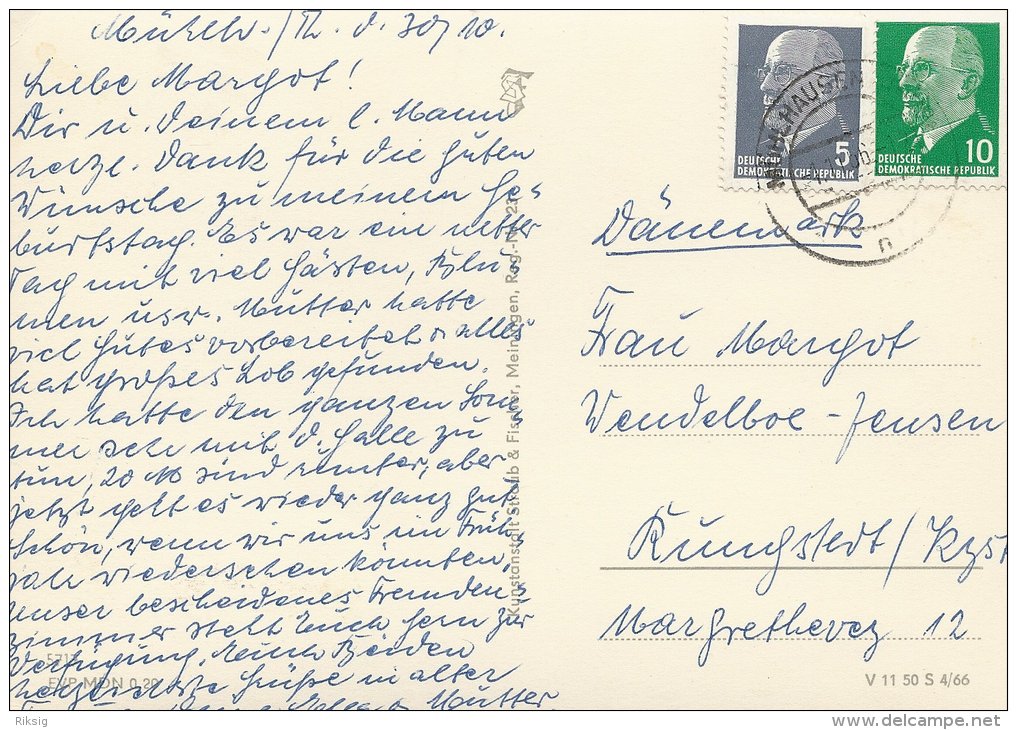 Mühlh./Th. d. 30/10.
Liebe Margot!
Dir u. Deinem l. Mann
herzl. Dank für die guten
Wünsche zu meinem Ge-
burtstag. Es war ein netter
Tag mit viel Gästen, Blu-
men usw. Mutter hatte
viel Gutes vorbereitet u. alles
hat großes Lob gefunden.
Ich hatte den ganzen Som-
mer sehr mit d. Galle zu
tun, 20 sind runter, aber
jetzt geht es wieder ganz gut.
Schön, wenn wir uns im Früh-
jahr wiedersehen könnten,
unser bescheidenes Fremden-
zimmer steht Euch gern zur
Verfügung. Euch Beiden
herzlichste Grüße in alter
Mutter
Kunstanstalt Straub & Fischer, Meiningen, Reg.-Nr.
5717
EVP MDN 0,20
DEUTSCHE 5
DEMOKRATISCHE REPUBLIK
DEUTSCHE 10
DEMOKRATISCHE REPUBLIK
MÜHLHAUSEN
n
Dänemark
Frau Margot
Wendelboe-Jensen
Rungstedt/Kyst
Margrethevej 12
V 11 50 S 4/66
Riksig
delcampe.net